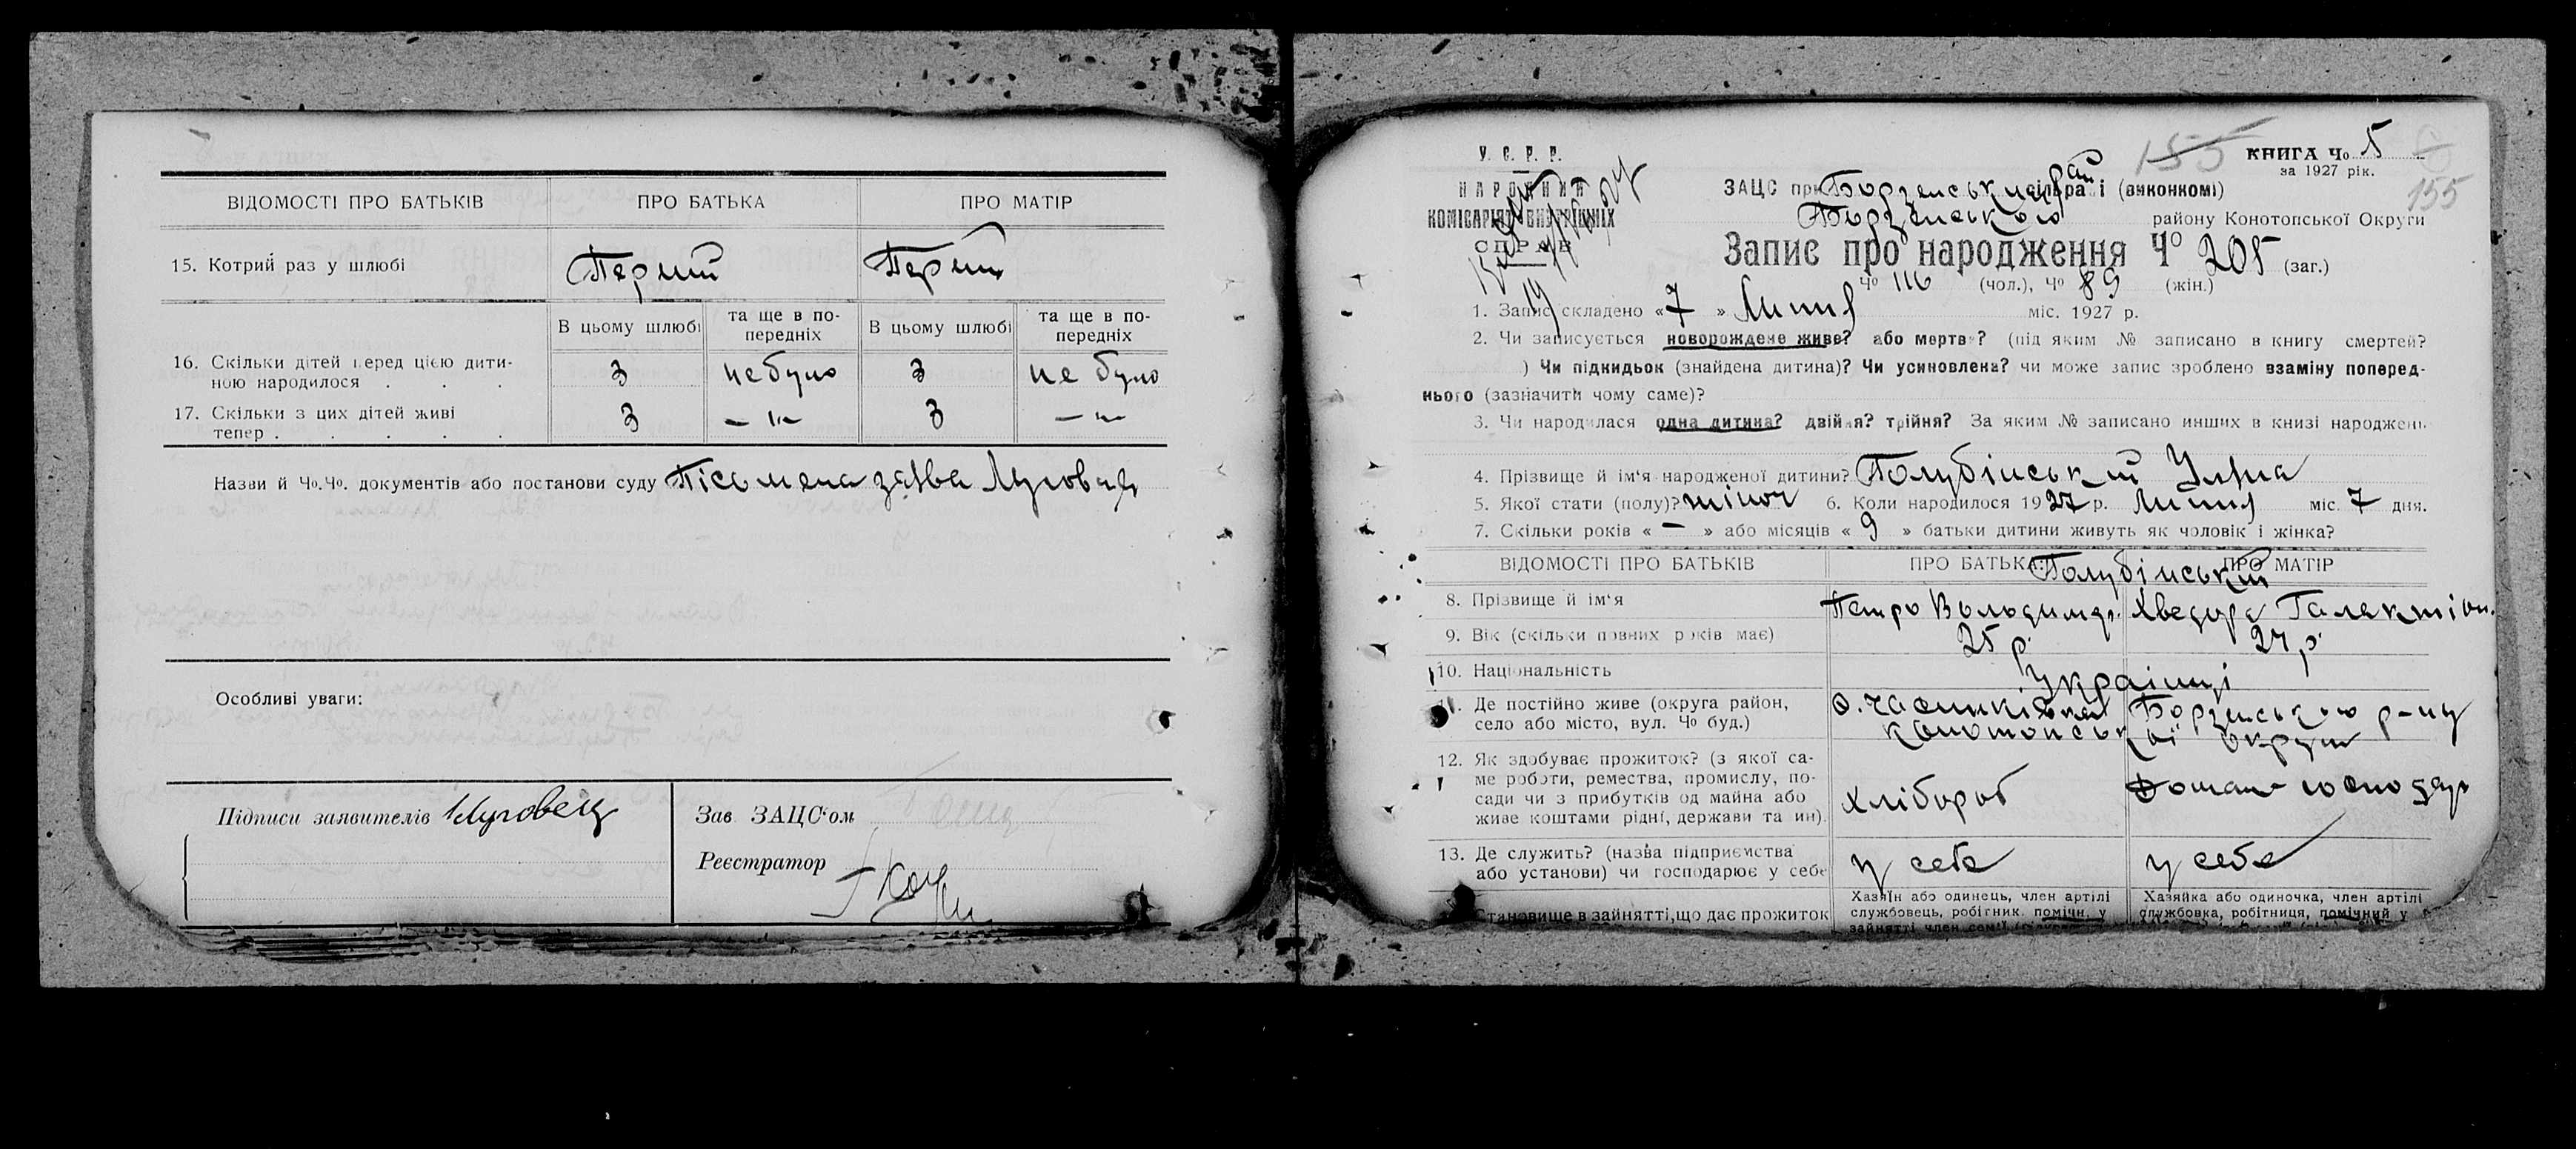 ВІДОМОСТІ ПРО БАТЬКІВ ПРО БАТЬКА ПРО МАТІР
15. Котрий раз у шлюбі Перший Перший
В цьому шлюбі та ще в по-передніх В цьому шлюбі та ще в по-передніх
16. Скільки дітей перед цією дити-
ною народилося . . . 3 небуло 3 не було
17. Скільки з цих дітей живі
тепер . . . . . 3 — „ — 3 — „ —
Назви й Чо.Чо. документів або постанови суду Пісьмена заява Луговця
Особливі уваги:
Підписи заявителів Луговець
Зав ЗАЦС'ом
Реєстратор
У. С. Р. Р.
НАРОДНИЙ
КОМІСАРІЯТ ВНУТРІШНІХ
СПРАВ
155 КНИГА Чо 5
за 1927 рік.
155
ЗАЦС при Борзенськ рай (виконкомі)
Борзенського району Конотопської Округи
Запис про народження Чо 205 (заг.)
Чо 116 (чол.), Чо 89 (жін.)
1. Запис складено «7» Липня міс. 1927 р.
2. Чи записується новорождене живе? або мертве? (під яким № записано в книгу смертей?
) Чи підкидьок (знайдена дитина)? Чи усиновлена? чи може запис зроблено взаміну поперед-
нього (зазначити чому саме)?
3. Чи народилася одна дитина? двійня? трійня? За яким № записано инших в книзі народжень
4. Прізвище й ім'я народженої дитини? Голубінський Уляна
5. Якої стати (полу)? жіноч 6. Коли народилося 1927 р. Липня міс. 7 дня.
7. Скільки років « — » або місяців « 9 » батьки дитини живуть як чоловік і жінка?
ВІДОМОСТІ ПРО БАТЬКІВ ПРО БАТЬКА ПРО МАТІР
Голубінський
8. Прізвище й ім'я Петро Володимир. Хведора Галактіон.
9. Вік (скільки повних років має) 25 р. 24 р.
10. Національність Українці
11. Де постійно живе (округа район, Борзенського р-ну
село або місто, вул. Чо буд.) Конотопської округи
12. Як здобуває прожиток? (з якої са-
ме роботи, ремества, промислу, по-
сади чи з прибутків од майна або
живе коштами рідні, держави та ин). Хлібороб Домаш господар
13. Де служить? (назва підприємства
або установи) чи господарює у себе у себе у себе
Становище в зайнятті, що дає прожиток
Хазяїн або одинець, член артілі
службовець, робітник. помічн. у
зайнятті член семї
Хазяйка або одиночка, член артілі
службовка, робітниця, помічний у